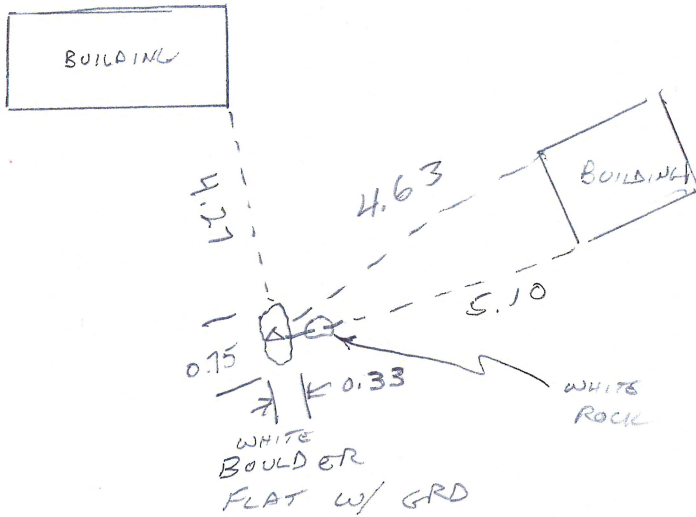 BUILDING
BUILDING
4.27
4.63
5.10
0.75
0.33
WHITE
ROCK
WHITE
BOULDER
FLAT W/ GRD